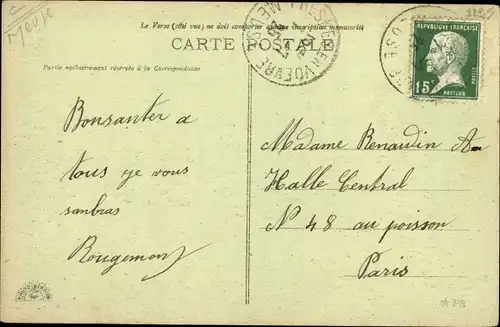 Meuse
Le Verso (côté vue) ne doit comporter aucune inscription manuscrite
CARTE POSTALE
Partie exclusivement réservée à la Correspondance
RÉPUBLIQUE FRANÇAISE
15c
POSTES
PASTEUR
Bonsanter a
tous je vous
sanbras
Rougemont
Madame Renaudin A
Halle Central
N 48 au poisson
Paris